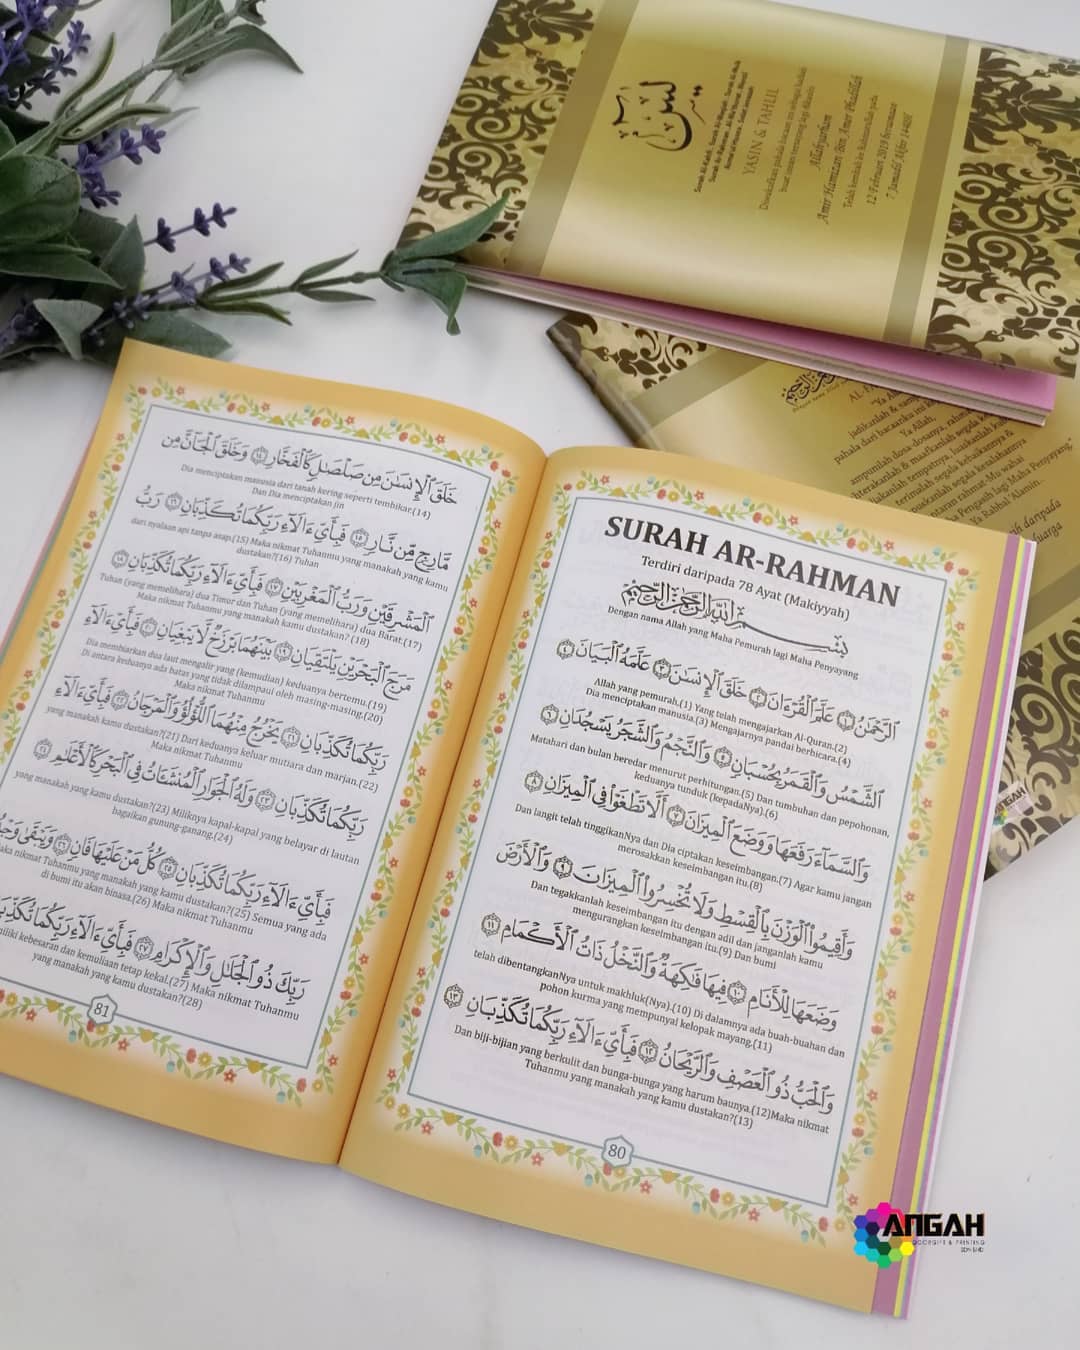 لس
Surah Al-Kahfi, Surah Al-Waqiah, Surah Al-Mulk
YASIN & TAHLIL
Disedekahkan pahala bacaan ini sebagai hadiah
buat insan tersayang lagi dikasihi
Allahyarham
Amir Hamizan Bin Amer Phadillah
Telah kembali ke Rahmatullah pada
12 Februari 2019 bersamaan
7 Jamadil Akhir 1440H
AL-
"Ya Allah,
jadikanlah & samp
pahala dari bacaanku ini
Ya Allah,
ampunlah dosa-dosanya, rahma
& maafkanlah segala k
tempatnya, luaskanlah kub
terimalah segala kebaikannya &
segala kesalahannya
rahmat-Mu wahai
Pengasih lagi Maha Penyayang."
Ya Rabbal'Alamin..
daripada
SURAH AR-RAHMAN
Terdiri daripada 78 Ayat (Makiyyah)
بِسْمِ اللَّهِ الرَّحْمَٰنِ الرَّحِيمِ
Dengan nama Allah yang Maha Pemurah lagi Maha Penyayang
ٱلرَّحْمَٰنُ ١ عَلَّمَ ٱلْقُرْءَانَ ٢ خَلَقَ ٱلْإِنسَٰنَ ٣ عَلَّمَهُ ٱلْبَيَانَ ٤
Allah yang pemurah.(1) Yang telah mengajarkan Al-Quran.(2)
Dia menciptakan manusia.(3) Mengajarnya pandai berbicara.(4)
ٱلشَّمْسُ وَٱلْقَمَرُ بِحُسْبَانٍ ٥ وَٱلنَّجْمُ وَٱلشَّجَرُ يَسْجُدَانِ ٦
Matahari dan bulan beredar menurut perhitungan.(5) Dan tumbuhan dan pepohonan,
keduanya tunduk (kepadaNya).(6)
وَٱلسَّمَآءَ رَفَعَهَا وَوَضَعَ ٱلْمِيزَانَ ٧ أَلَّا تَطْغَوْا۟ فِى ٱلْمِيزَانِ ٨
Dan langit telah tinggikanNya dan Dia ciptakan keseimbangan.(7) Agar kamu jangan
merosakkan keseimbangan itu.(8)
وَأَقِيمُوا۟ ٱلْوَزْنَ بِٱلْقِسْطِ وَلَا تُخْسِرُوا۟ ٱلْمِيزَانَ ٩ وَٱلْأَرْضَ
Dan tegakkanlah keseimbangan itu dengan adil dan janganlah kamu
mengurangkan keseimbangan itu.(9) Dan bumi
وَضَعَهَا لِلْأَنَامِ ١٠ فِيهَا فَٰكِهَةٌ وَٱلنَّخْلُ ذَاتُ ٱلْأَكْمَامِ ١١
telah dibentangkanNya untuk makhluk(Nya).(10) Di dalamnya ada buah-buahan dan
pohon kurma yang mempunyai kelopak mayang.(11)
وَٱلْحَبُّ ذُو ٱلْعَصْفِ وَٱلرَّيْحَانُ ١٢ فَبِأَىِّ ءَالَآءِ رَبِّكُمَا تُكَذِّبَانِ ١٣
Dan biji-bijian yang berkulit dan bunga-bunga yang harum baunya.(12)Maka nikmat
Tuhanmu yang manakah yang kamu dustakan?(13)
80
خَلَقَ ٱلْإِنسَٰنَ مِن صَلْصَٰلٍ كَٱلْفَخَّارِ ١٤ وَخَلَقَ ٱلْجَآنَّ مِن
Dia menciptakan manusia dari tanah kering seperti tembikar.(14)
Dan Dia menciptakan jin
مَّارِجٍ مِّن نَّارٍ ١٥ فَبِأَىِّ ءَالَآءِ رَبِّكُمَا تُكَذِّبَانِ ١٦ رَبُّ
dari nyalaan api tanpa asap.(15) Maka nikmat Tuhanmu yang manakah yang kamu
dustakan?(16) Tuhan
ٱلْمَشْرِقَيْنِ وَرَبُّ ٱلْمَغْرِبَيْنِ ١٧ فَبِأَىِّ ءَالَآءِ رَبِّكُمَا تُكَذِّبَانِ ١٨
Tuhan (yang memelihara) dua Timur dan Tuhan (yang memelihara) dua Barat.(17)
Maka nikmat Tuhanmu yang manakah kamu dustakan? (18)
مَرَجَ ٱلْبَحْرَيْنِ يَلْتَقِيَانِ ١٩ بَيْنَهُمَا بَرْزَخٌ لَّا يَبْغِيَانِ ٢٠ فَبِأَىِّ ءَالَآءِ
Dia membiarkan dua laut mengalir yang (kemudian) keduanya bertemu.(19)
Di antara keduanya ada batas yang tidak dilampaui oleh masing-masing.(20)
Maka nikmat Tuhanmu
رَبِّكُمَا تُكَذِّبَانِ ٢١ يَخْرُجُ مِنْهُمَا ٱللُّؤْلُؤُ وَٱلْمَرْجَانُ ٢٢ فَبِأَىِّ ءَالَآءِ
yang manakah kamu dustakan?(21) Dari keduanya keluar mutiara dan marjan.(22)
Maka nikmat Tuhanmu
رَبِّكُمَا تُكَذِّبَانِ ٢٣ وَلَهُ ٱلْجَوَارِ ٱلْمُنشَـَٔاتُ فِى ٱلْبَحْرِ كَٱلْأَعْلَٰمِ ٢٤
yang manakah yang kamu dustakan?(23) Miliknya kapal-kapal yang belayar di lautan
bagaikan gunung-ganang.(24)
فَبِأَىِّ ءَالَآءِ رَبِّكُمَا تُكَذِّبَانِ ٢٥ كُلُّ مَنْ عَلَيْهَا فَانٍ ٢٦ وَيَبْقَىٰ
aka nikmat Tuhanmu yang manakah yang kamu dustakan?(25) Semua yang ada
di bumi itu akan binasa.(26) Maka nikmat Tuhanmu
رَبِّكَ ذُو ٱلْجَلَٰلِ وَٱلْإِكْرَامِ ٢٧ فَبِأَىِّ ءَالَآءِ رَبِّكُمَا
miliki kebesaran dan kemuliaan tetap kekal.(27) Maka nikmat Tuhanmu
yang manakah yang kamu dustakan?(28)
81
ANGAH
DOORGIFT & PRINTING
SDN BHD